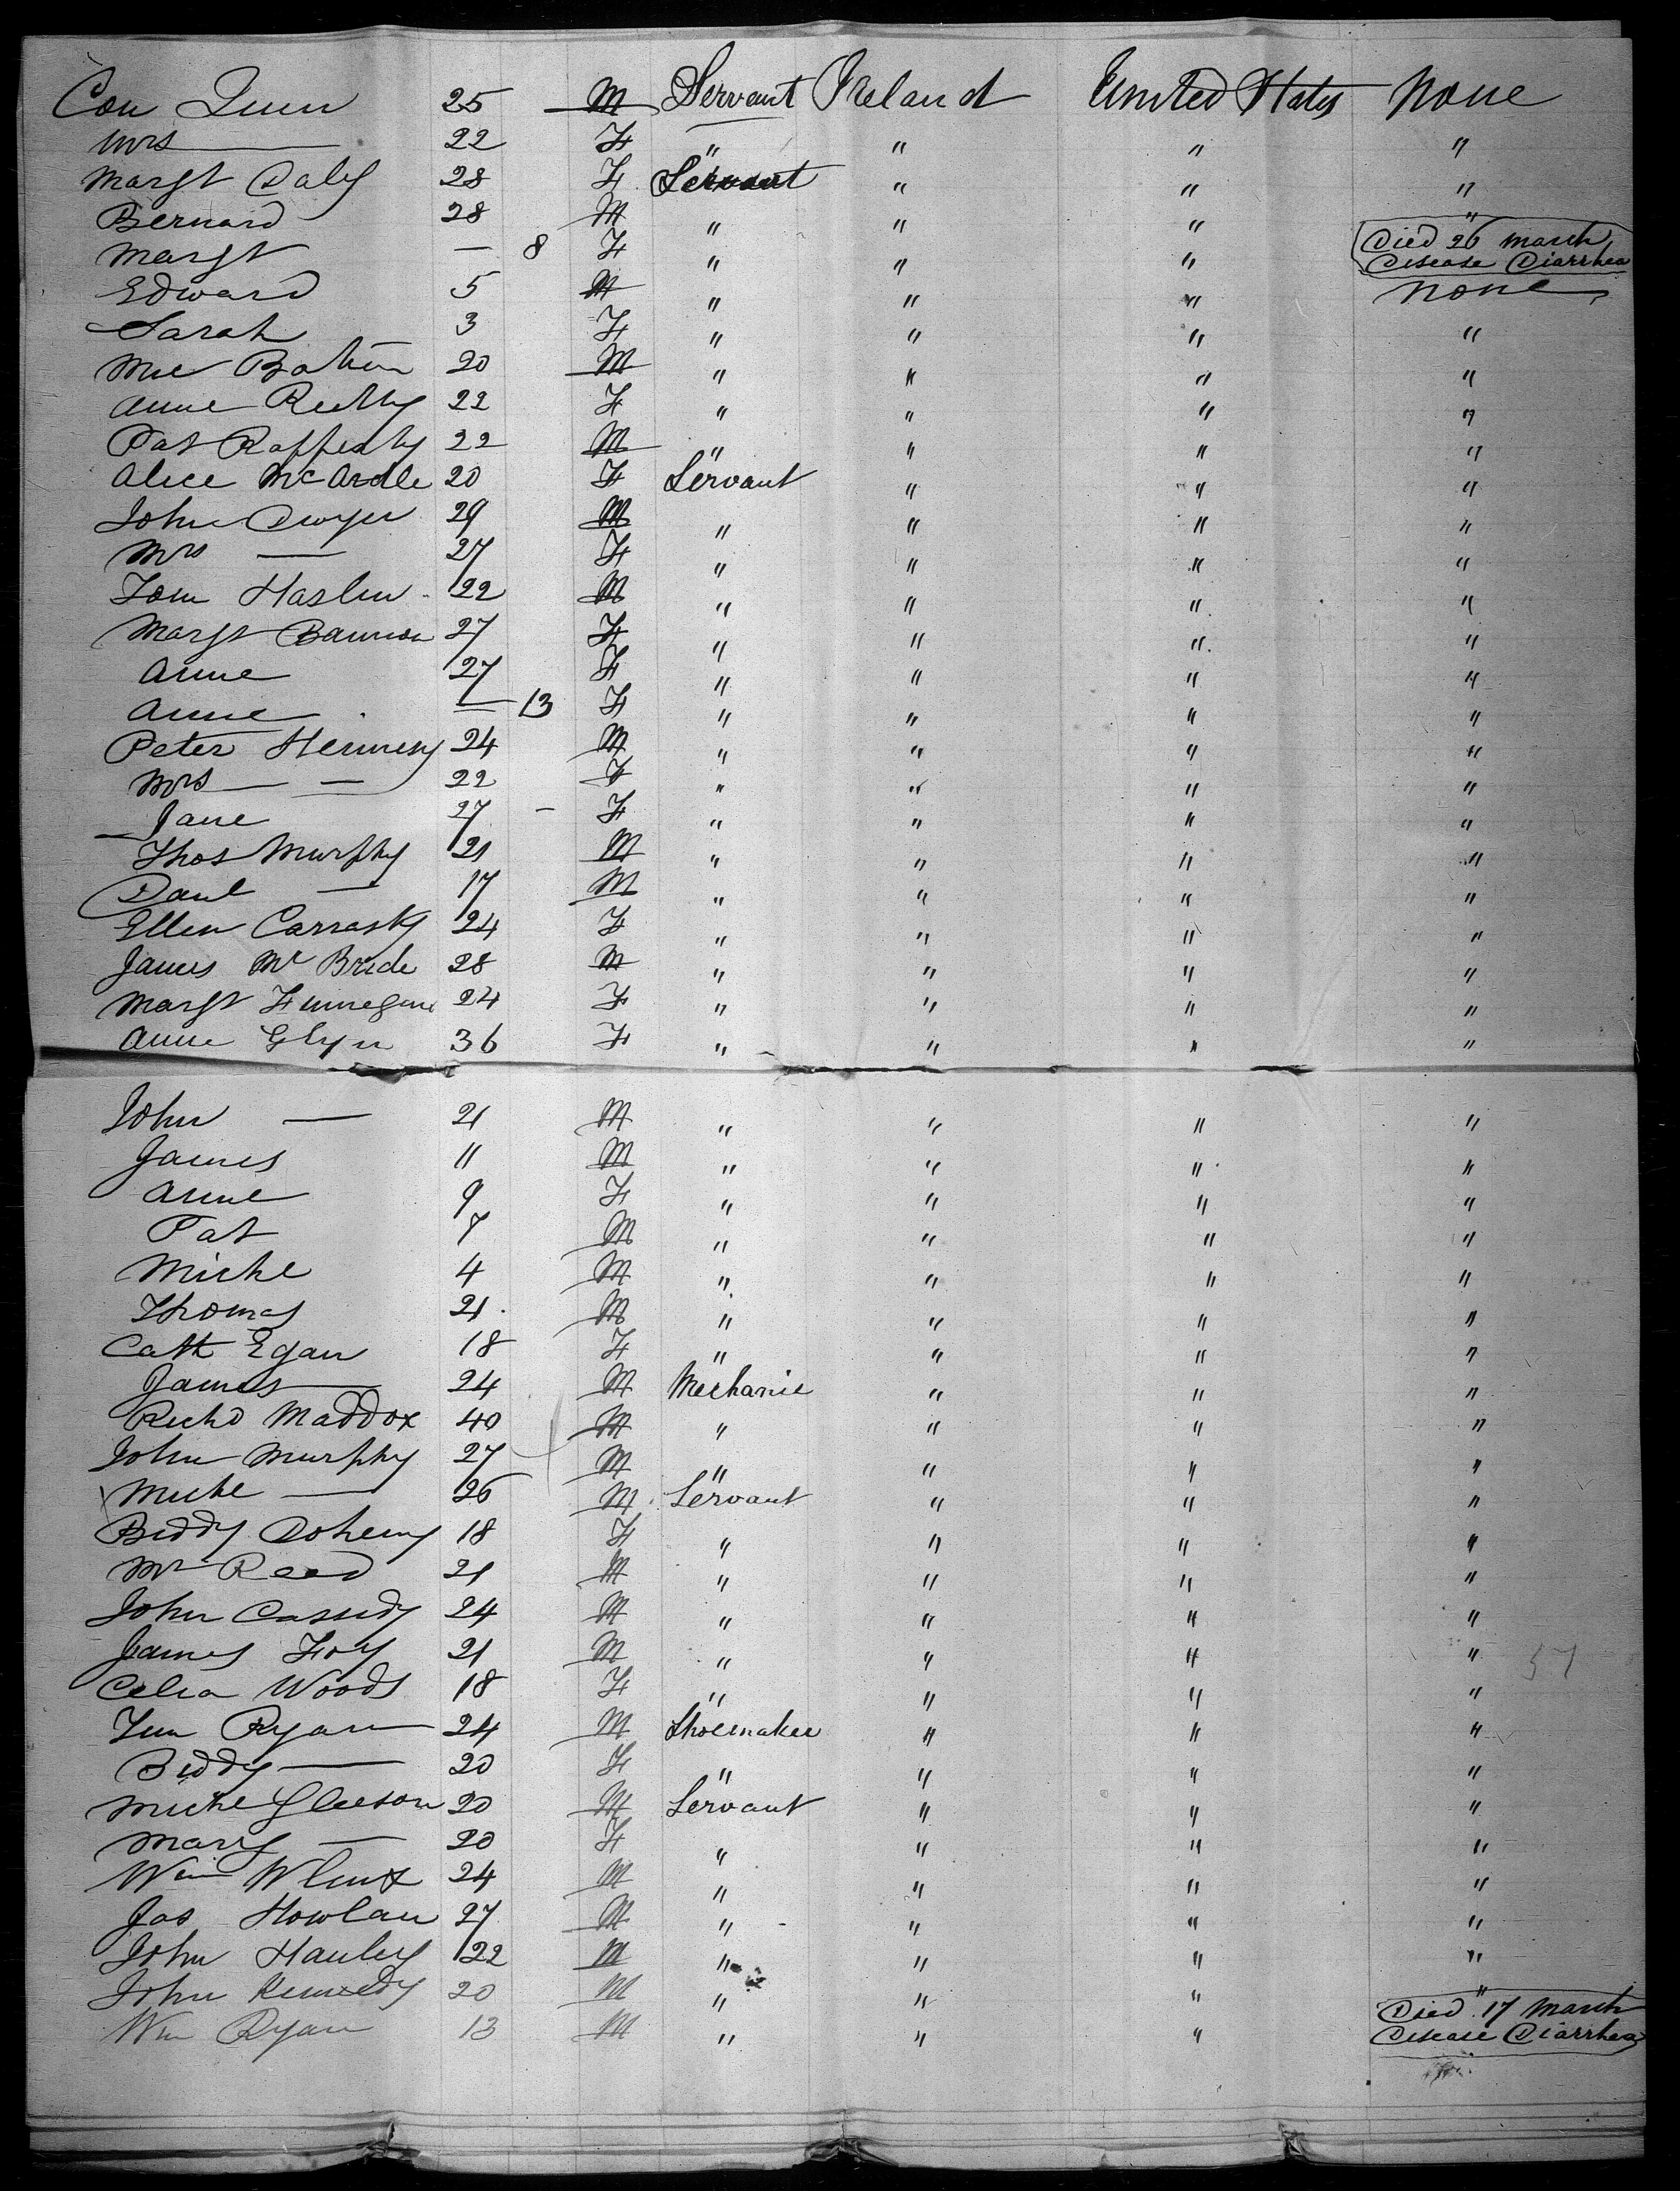 Con Quin 25 M Servant Ireland United States None
Mrs — 22 F " " " "
Margt Daly 28 F Servant " " "
Bernard 28 M " " " "
Margt — 8 F " " " Died 26 March Disease Diarrhea
Edward 5 M " " " None
Sarah 3 F " " " "
20 M " " " "
Anne Reilly 22 F " " " "
Pat Rafferty 22 M " " " "
Alice McArdle 20 F Servant " " "
John Dwyer 29 M " " " "
Mrs — 27 F " " " "
Tom Haslen 22 M " " " "
Margt Bannon 27 F " " " "
Anne 27 F " " " "
Anne — 13 F " " " "
Peter Hennesy 24 M " " " "
Mrs — — 22 F " " " "
Jane 27 - F " " " "
Thos Murphy 21 M " " " "
Danl — 17 M " " " "
Ellen 24 F " " " "
James Mc Bride 28 M " " " "
Margt Finnegan 24 F " " " "
Anne Glyn 36 F " " " "
John — 21 M " " " "
James 11 M " " " "
Anne 9 F " " " "
Pat 7 M " " " "
Michl 4 M " " " "
Thomas 21 M " " " "
Cath Egan 18 F " " " "
James — 24 M Mechanic " " "
Richd Maddox 40 M " " " "
John Murphy 27 M " " " "
Michl — 26 M Servant " " "
Biddy Doheny 18 F " " " "
Mr Reed 21 M " " " "
John Cassidy 24 M " " " "
James Foy 21 M " " " " 57
Celia Woods 18 F " " " "
Tim Ryan 24 M Shoemaker " " "
Biddy — 20 F " " " "
Michl Gleeson 20 M Servant " " "
Mary — 20 F " " " "
Wm 24 M " " " "
Jas Howlan 27 M " " " "
John Hanley 22 M " " " "
John Kennedy 20 M " " " "
Wm Ryan 13 M " " " Died 17 March Disease Diarrhea